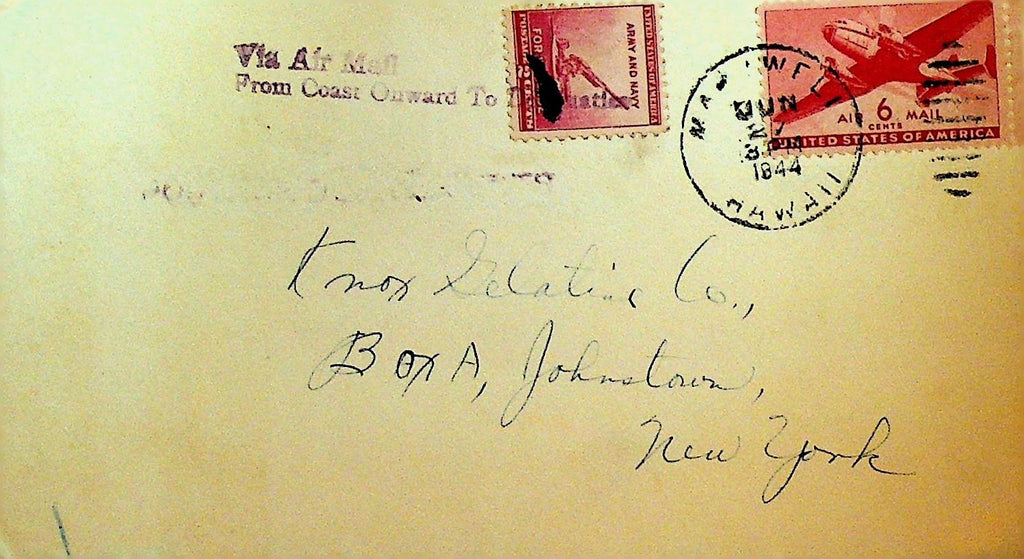 Via Air Mail
From Coast Onward To Destination
UNITED STATES OF AMERICA
ARMY AND NAVY
FOR
POSTAGE
2 CENTS
HAWAII
JUN
7
3 PM
1944
AIR 6 MAIL
CENTS
UNITED STATES OF AMERICA
Knox Gelatine Co.,
Box A, Johnstown,
New York